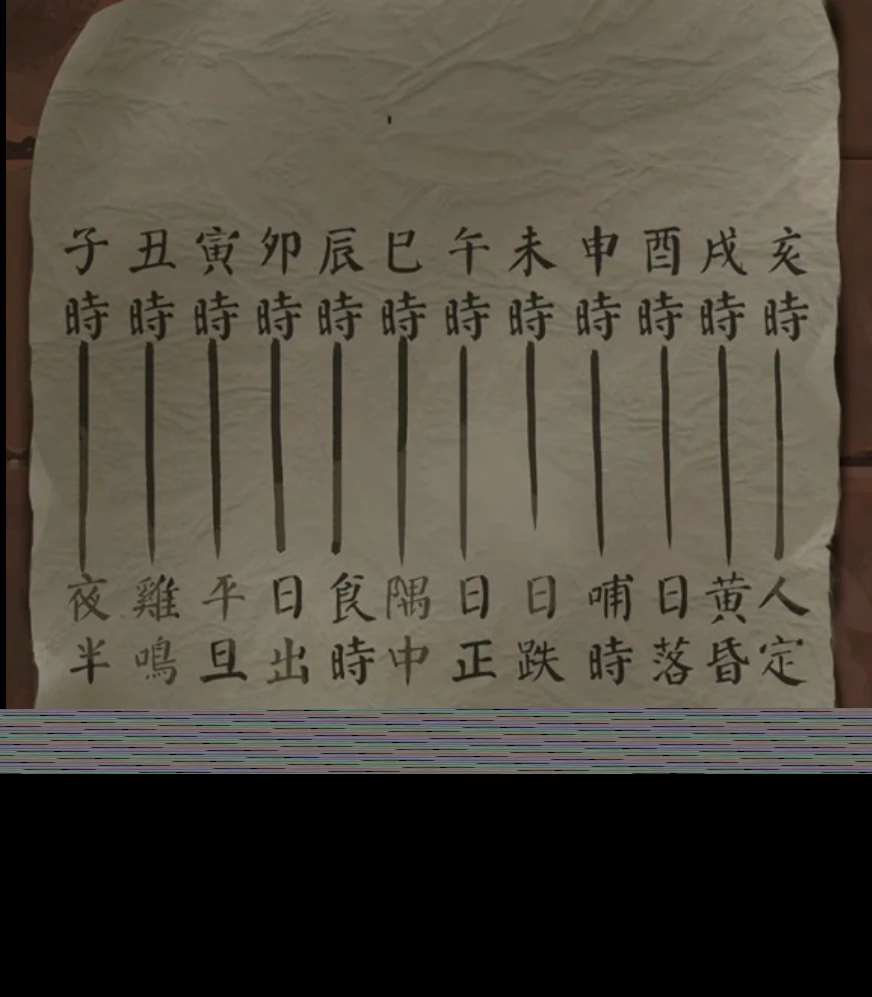 子時 夜半
丑時 雞鳴
寅時 平旦
卯時 日出
辰時 食時
巳時 隅中
午時 日正
未時 日跌
申時 哺時
酉時 日落
戌時 黄昏
亥時 人定